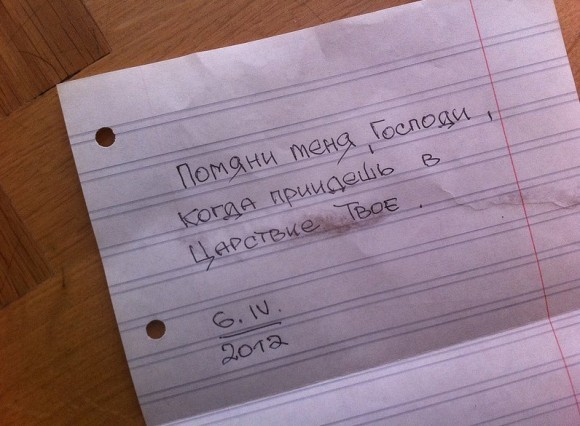 Помяни меня, Господи,
когда приидешь в
Царствие Твое.
6.IV.
2012